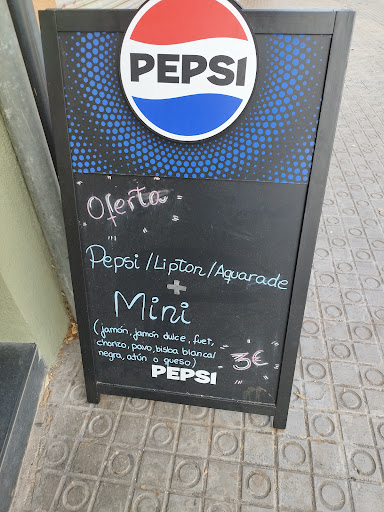 PEPSI
Oferta
Pepsi/Lipton/Aquarade
+
Mini
(jamón, jamón dulce, fuet,
chorizo, pavo, bisba blanca/
negra, atún o queso)
3€
PEPSI